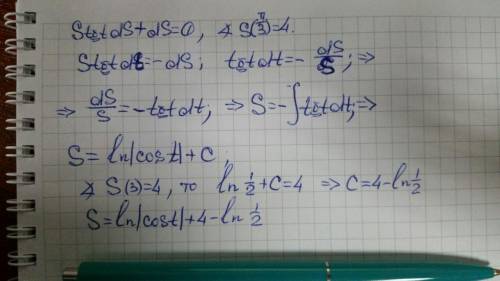 S tgt dS + dS = 0, ∢ S(π/3) = 4.
S tgt dt = -dS; tgt dt = - dS/S; ⇒
⇒ dS/S = -tgt dt; ⇒ S = -∫tgt dt; ⇒
S = ln|cost| + C;
∢ S(3) = 4, то ln 1/2 + C = 4 ⇒ C = 4 - ln 1/2
S = ln|cost| + 4 - ln 1/2